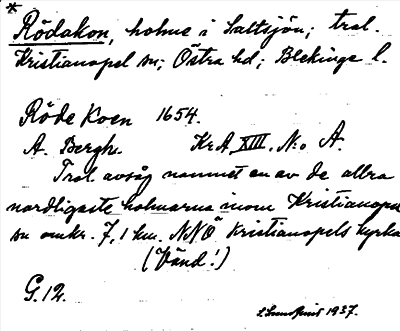 * Rödakon, holme i Saltsjön; trol.
Kristianopel sn; Östra hd; Blekinge l.
Röde Koen 1654.
A. Bergh. KrA XIII. No A.
Trol. avsåg namnet en av de allra
nordligaste holmarna inom Kristianopel
sn omkr. 7,1 km. NNÖ Kristianopels kyrka
(Vänd!)
G. 12.
1937.